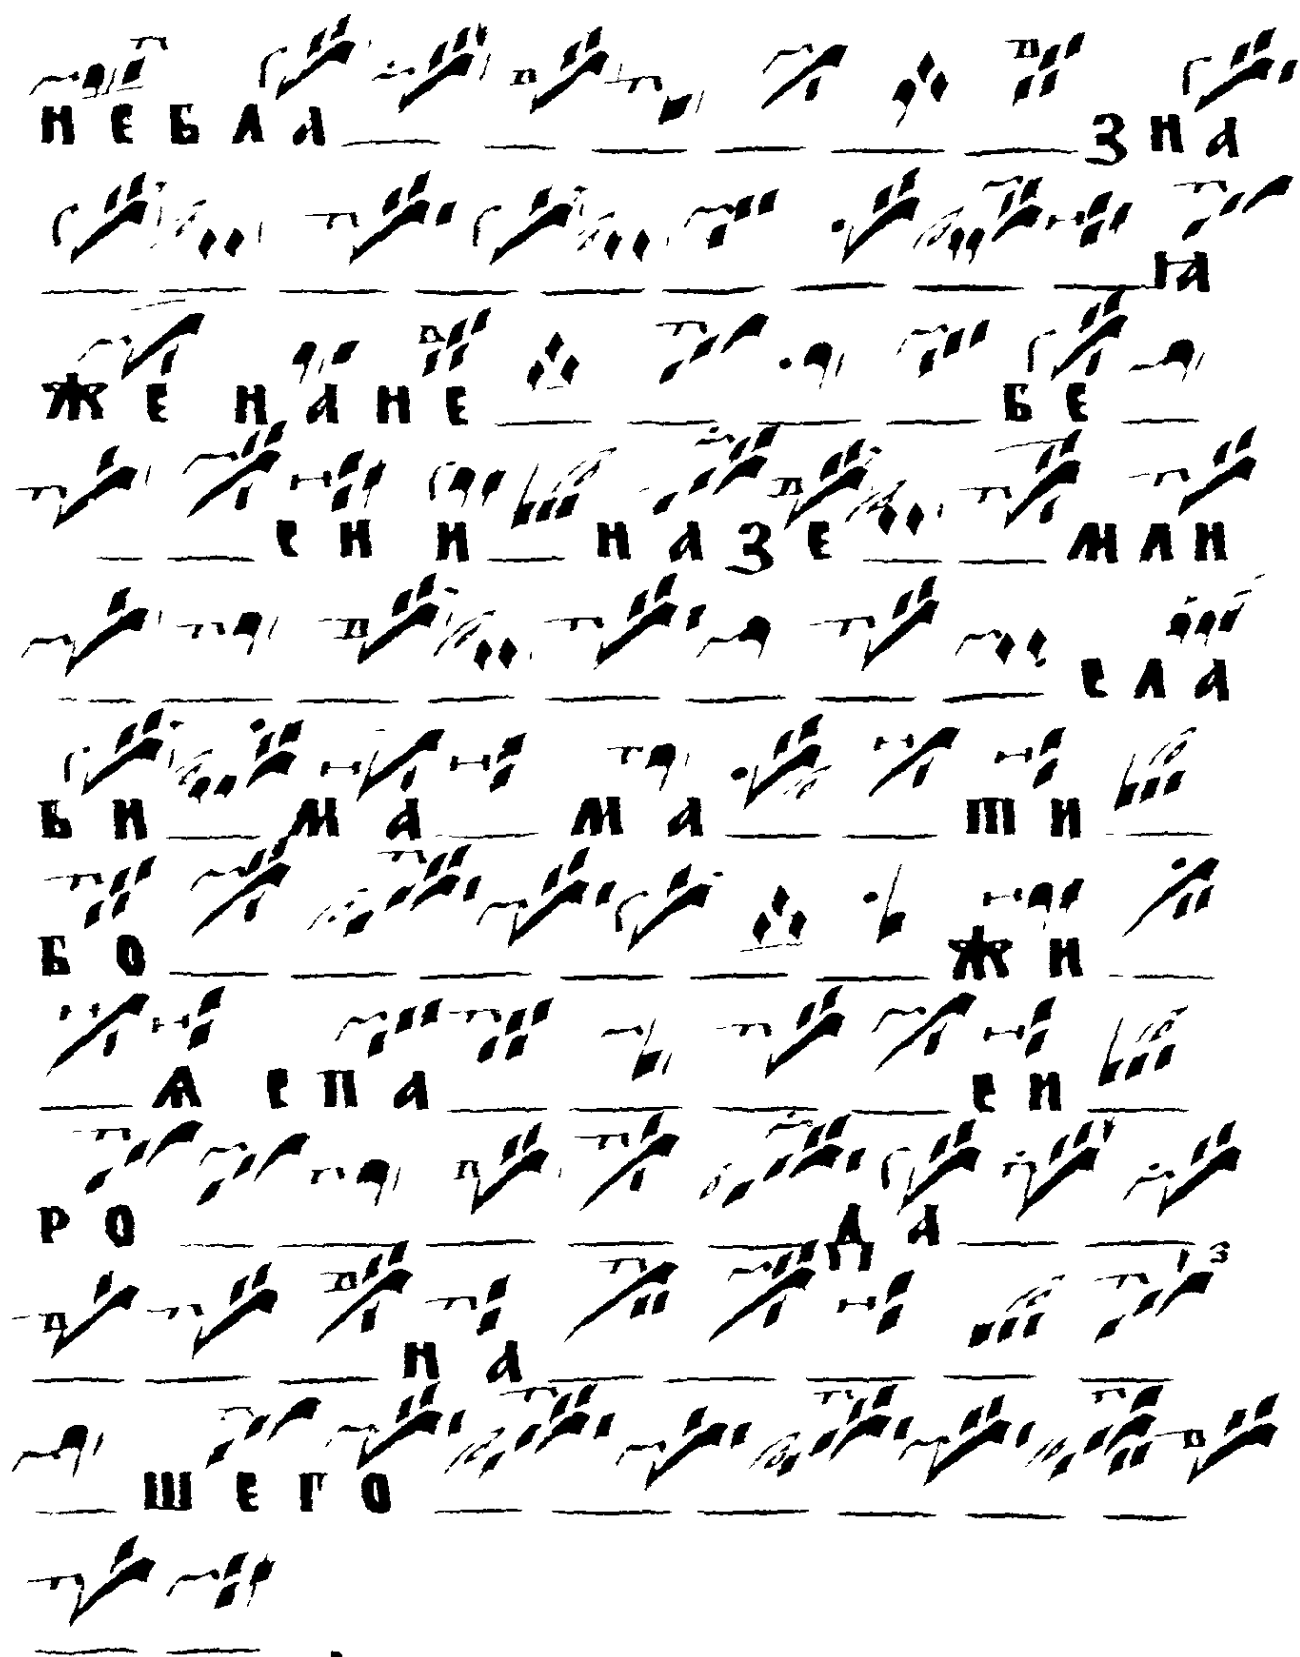 НЕБЛАЗНА
ꙖЖЕНАНЕБЕ
ЕНИНАЗЕМЛИ
ЕЛА
БИМАМАТИ
БОЖИ
ѦЕПА ЕИ
РОДА
НА
ШЕГО